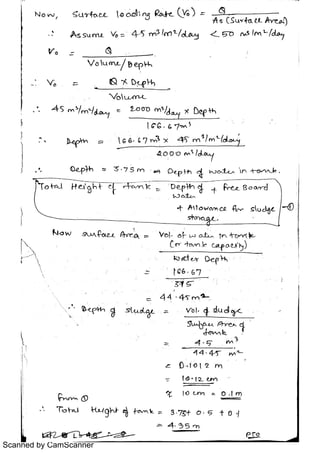 Now, Surface loading Rate (V₀) = Q
As (Surface Area)
∴ Assume V₀ = 45 m³/m²/day < 50 m³/m²/day
V₀ = Q
Volume/Depth
∴ V₀ = Q × Depth
Volume
∴ 45 m³/m²/day = 2000 m³/day × Depth
166.67m³
∴ Depth = 166.67 m³ × 45 m³/m²/day
2000 m³/day
∴ Depth = 3.75 m Depth of water in tank.
Total Height of tank = Depth of water + Free Board
+ Allowance for sludge storage. — ①
Now Surface Area = Vol. of water in tank
(or tank capacity)
Water Depth
= 166.67
3.75
= 44.45 m²
∴ Depth of sludge = Vol. of sludge
Surface Area of tank
= 4.5 m³
44.45 m²
= 0.1012 m
= 10.12 cm
≈ 10 cm = 0.1 m
From ①
∴ Total Height of tank = 3.75 + 0.5 + 0.1
= 4.35 m
PTO
Scanned by CamScanner